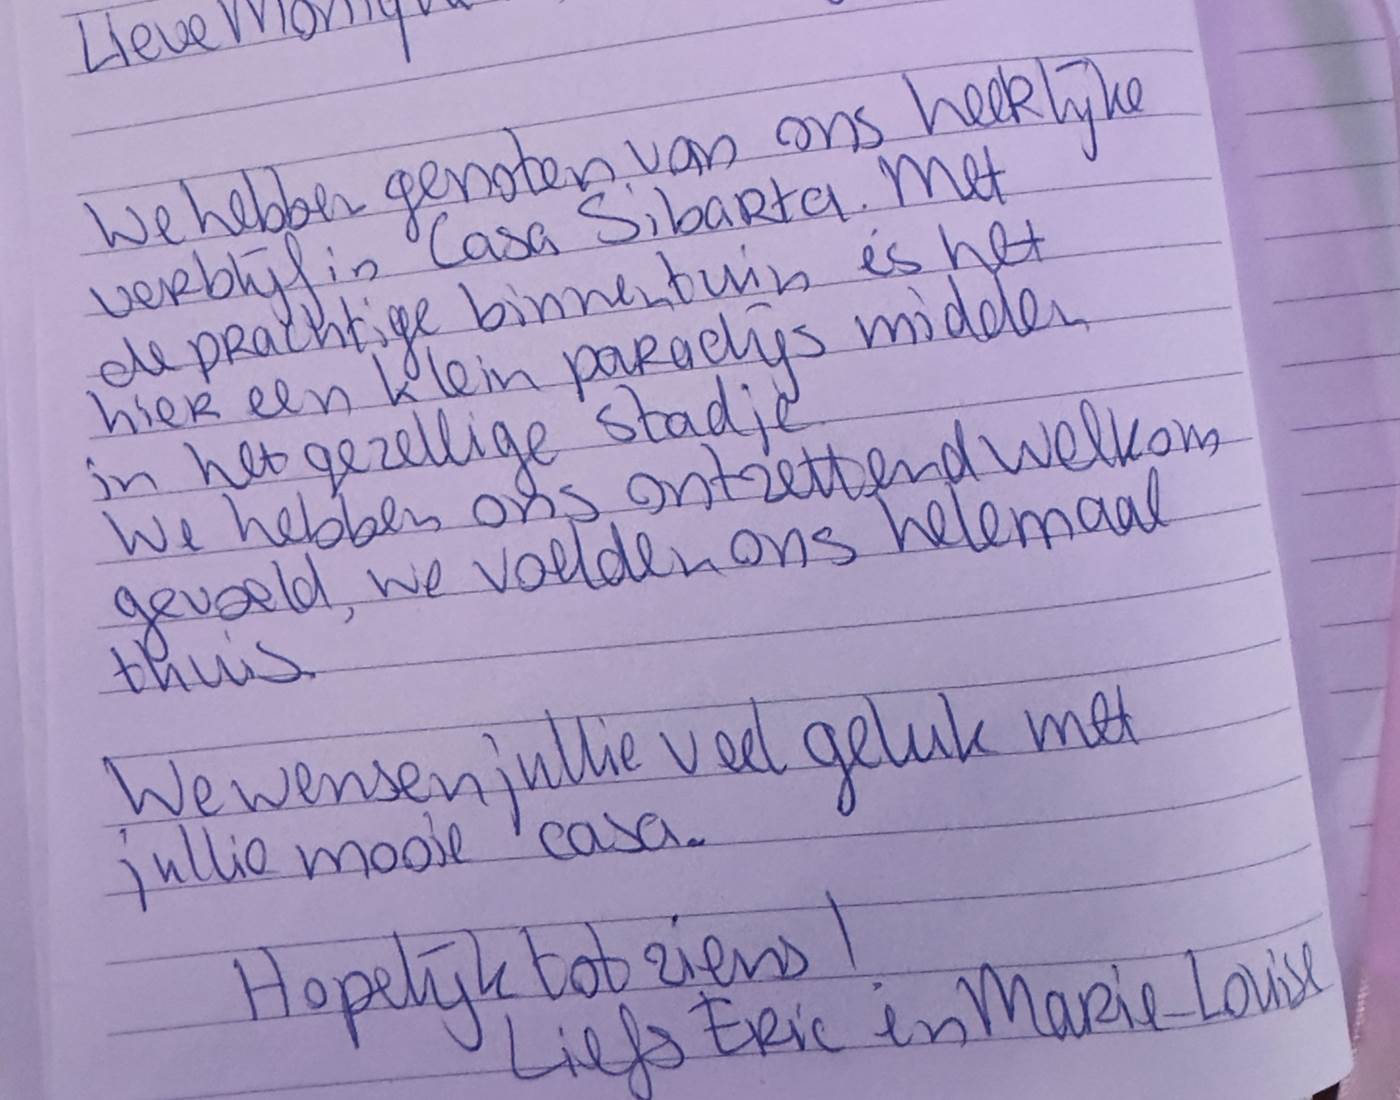 Lieve
We hebben genoten van ons heerlijke
verblijf in Casa Sibarta. Met
de prachtige binnentuin is het
hier een klein paradijs midden
in het gezellige stadje
We hebben ons ontzettend welkom
gevoeld, we voelden ons helemaal
thuis.
We wensen jullie veel geluk met
jullie mooie casa.
Hopelijk tot ziens!
Liefs Eric en Marie-Louise